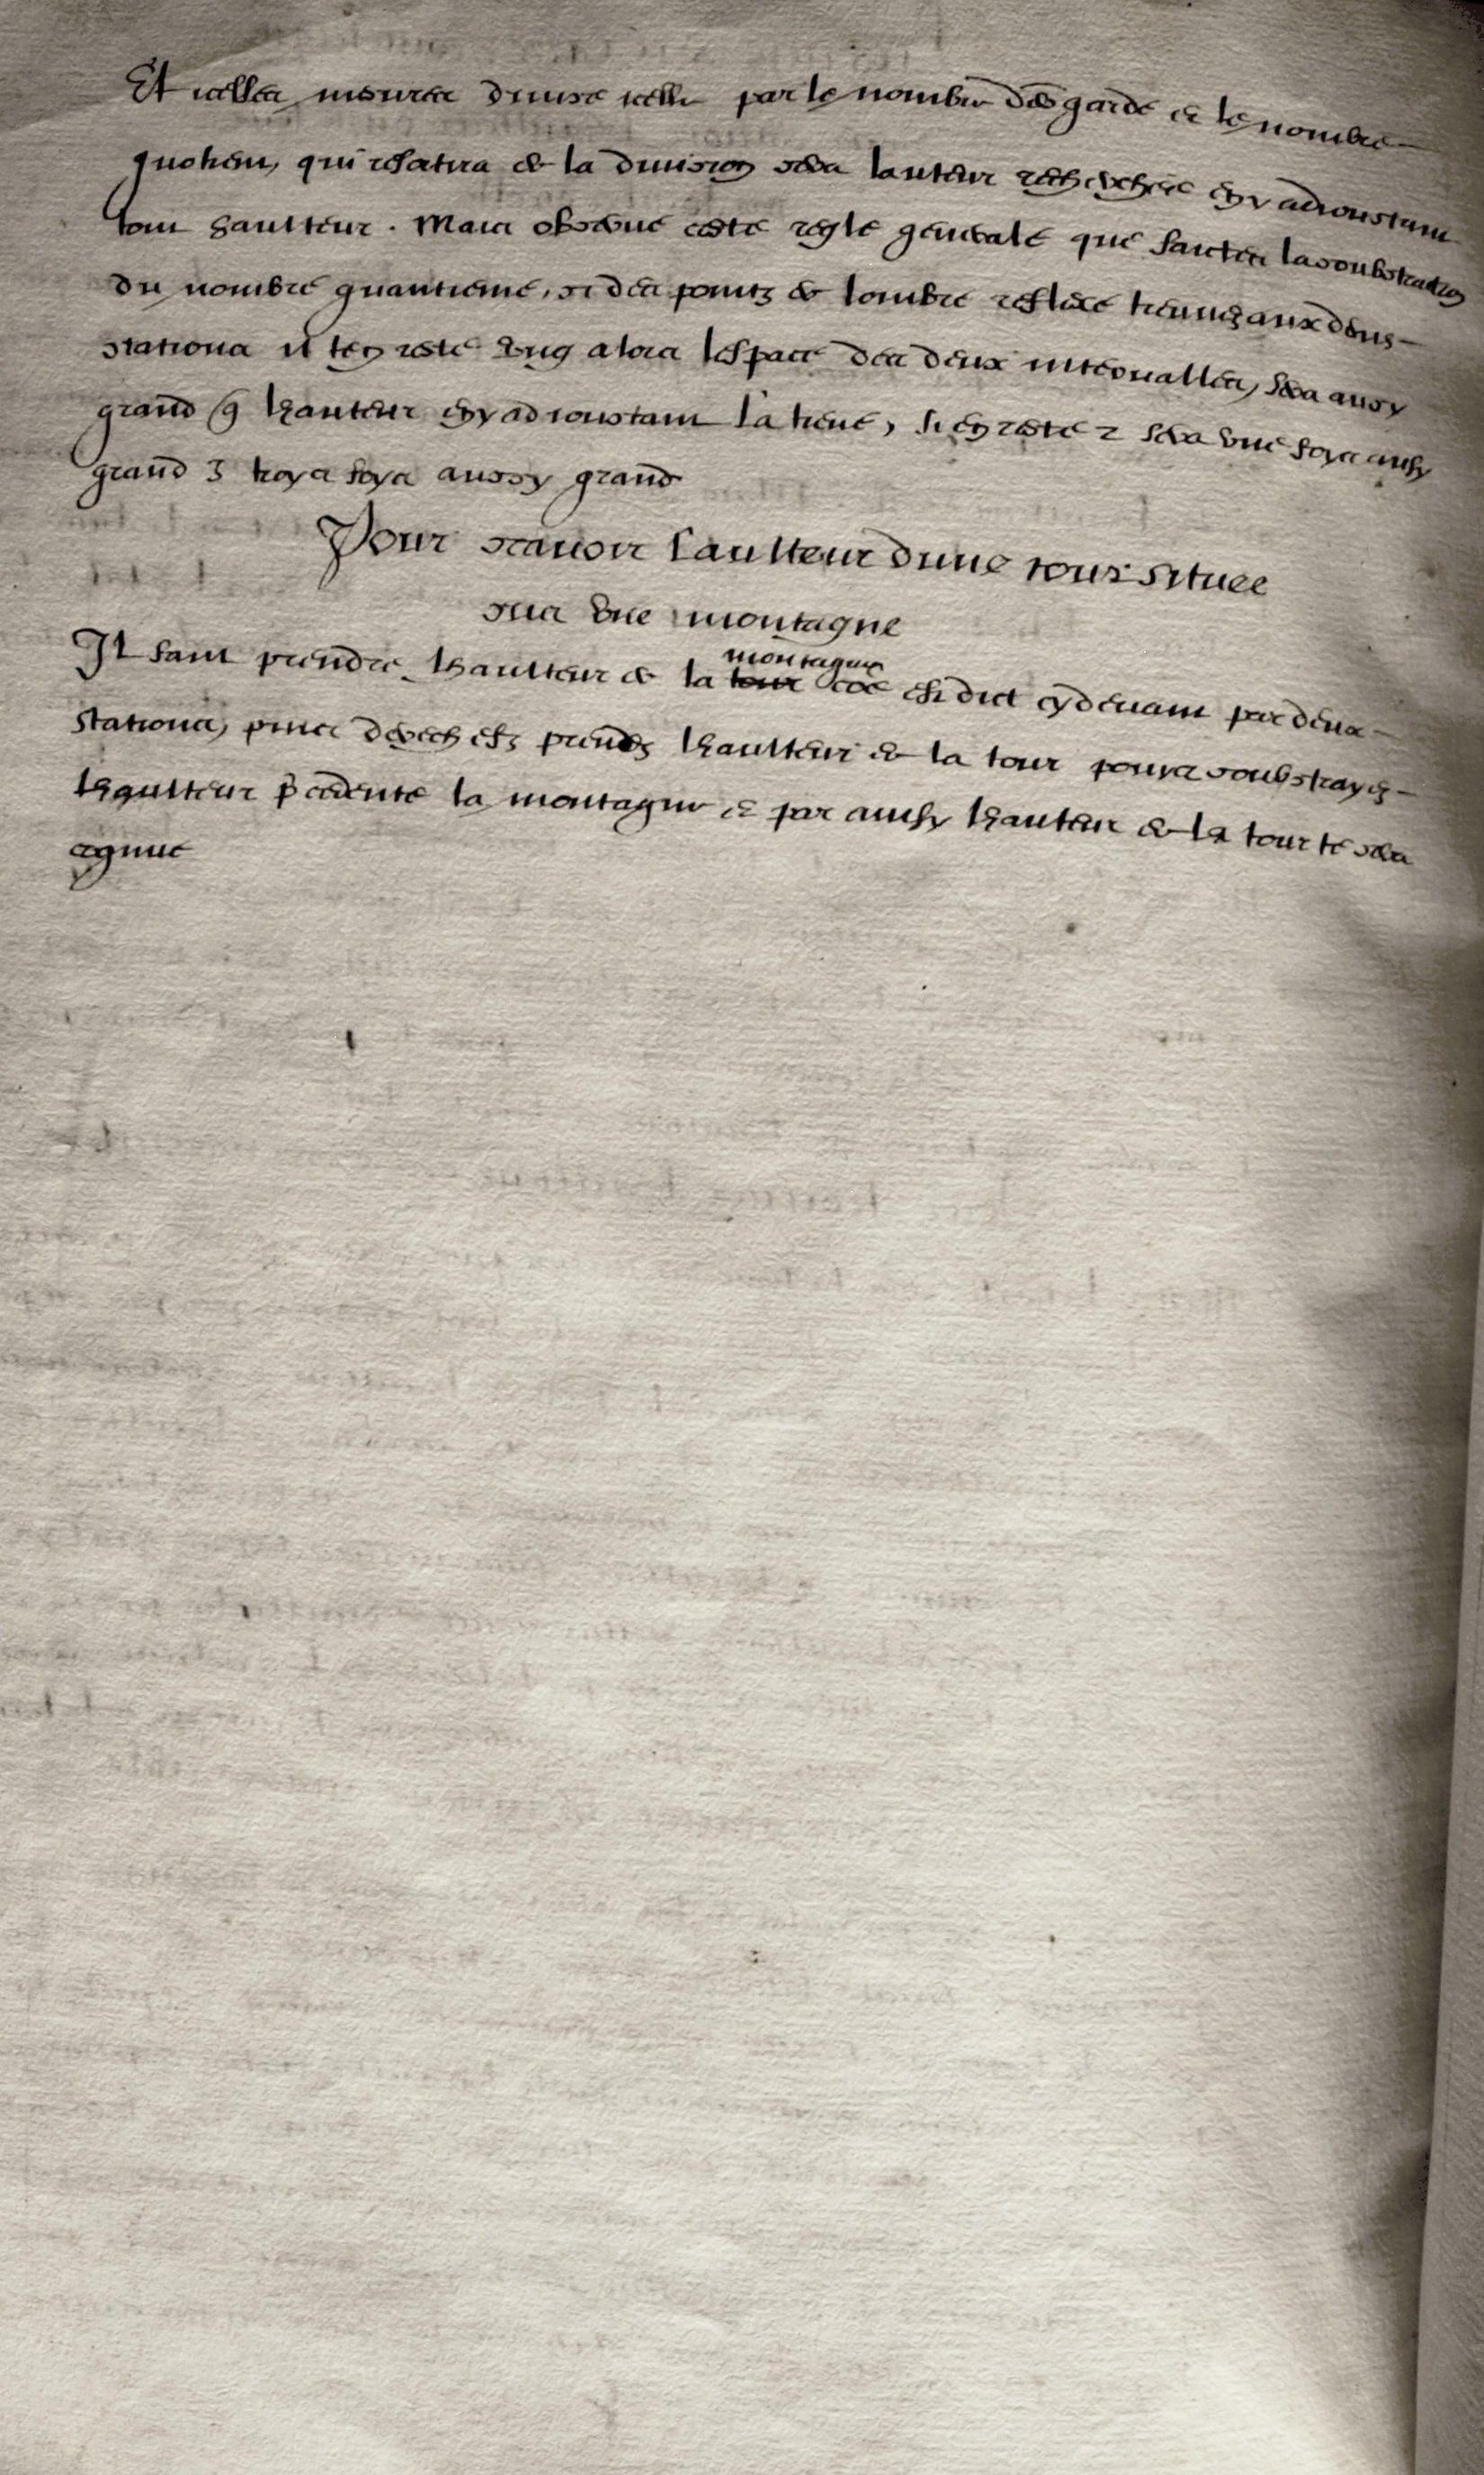 Et icelles mesures diuise icelle par le nombre des garde & le nombre
quotient, qui resortira de la diuision sera lauteur recherchee en y adioustant
tom haulteur. Mais obserue ceste regle generale que faictes la soubstraction
du nombre quantieme, si des pointz de lombre reflexe trennez aux deus
stations il ten reste vng alors lespace des deux interualles, sera aussy
grand q hauteur en y adioustant la tiene, si en reste 2 sera vne foys aussy
grand 3 troys foys aussy grand
Pour scauoir haulteur dune tour situee
sus vne montagne
Il faut prendre lhaulteur de la montagne coe est dict cy deuant par deux
stations, puis derechefz prendz lhaulteur de la tour pours soubstrayez
lhaulteur pcedente la montagne & par ainsy lhauteur de la tour te sera
cognue